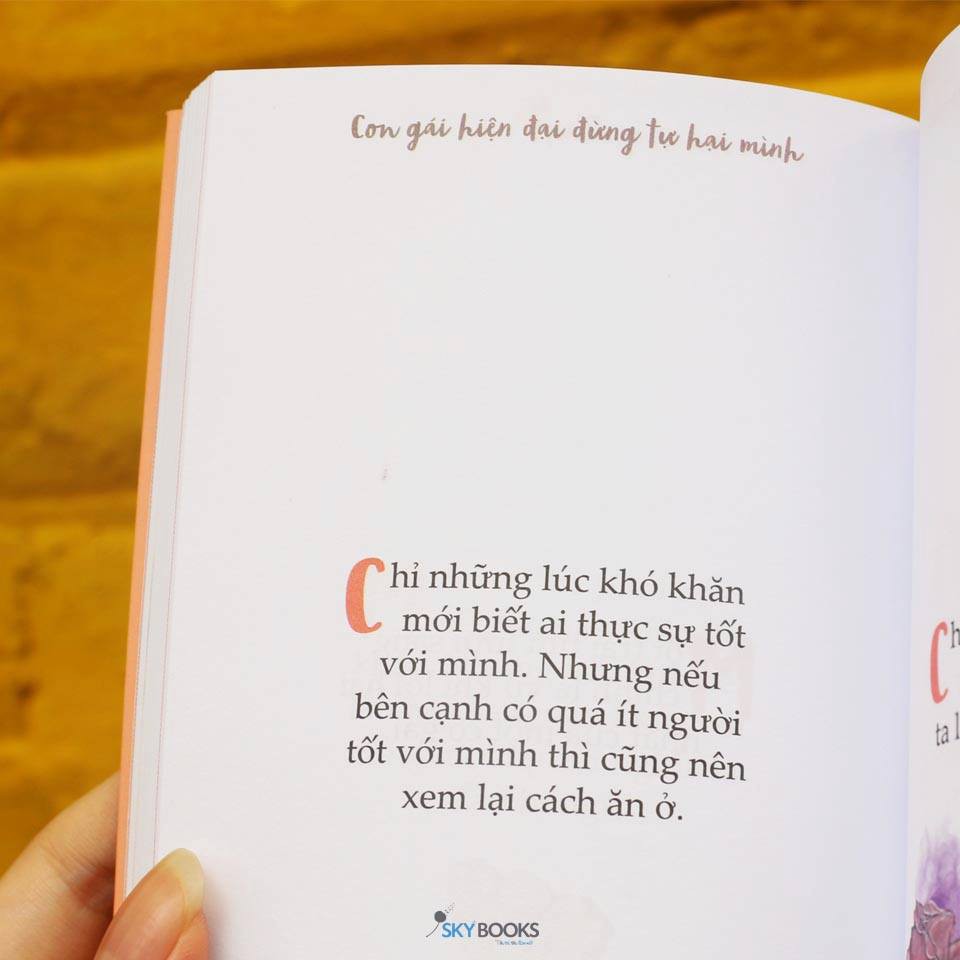 Con gái hiện đại đừng tự hại mình
Chỉ những lúc khó khăn
mới biết ai thực sự tốt
với mình. Nhưng nếu
bên cạnh có quá ít người
tốt với mình thì cũng nên
xem lại cách ăn ở.
Ch
ta l
SKYBOOKS